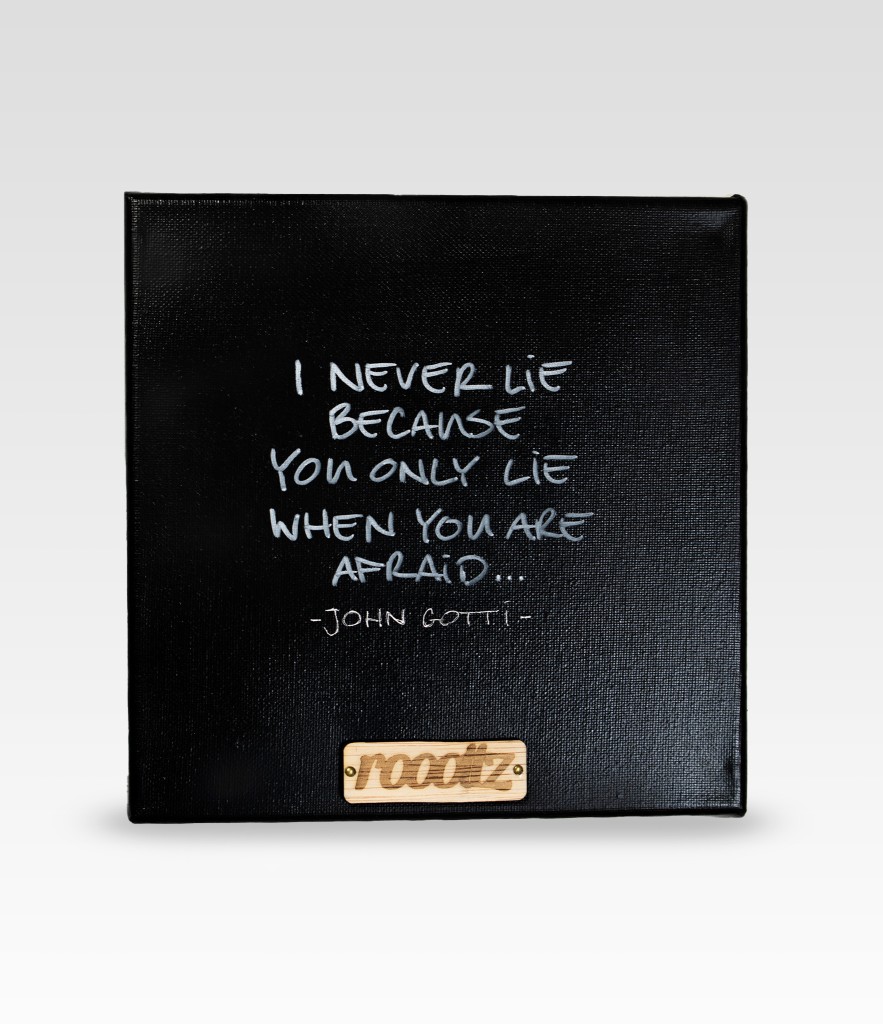 I NEVER LiE
BECAUSE
YOU ONLY LiE
WHEN YOU ARE
AFRAiD...
-JOHN GOTTi-